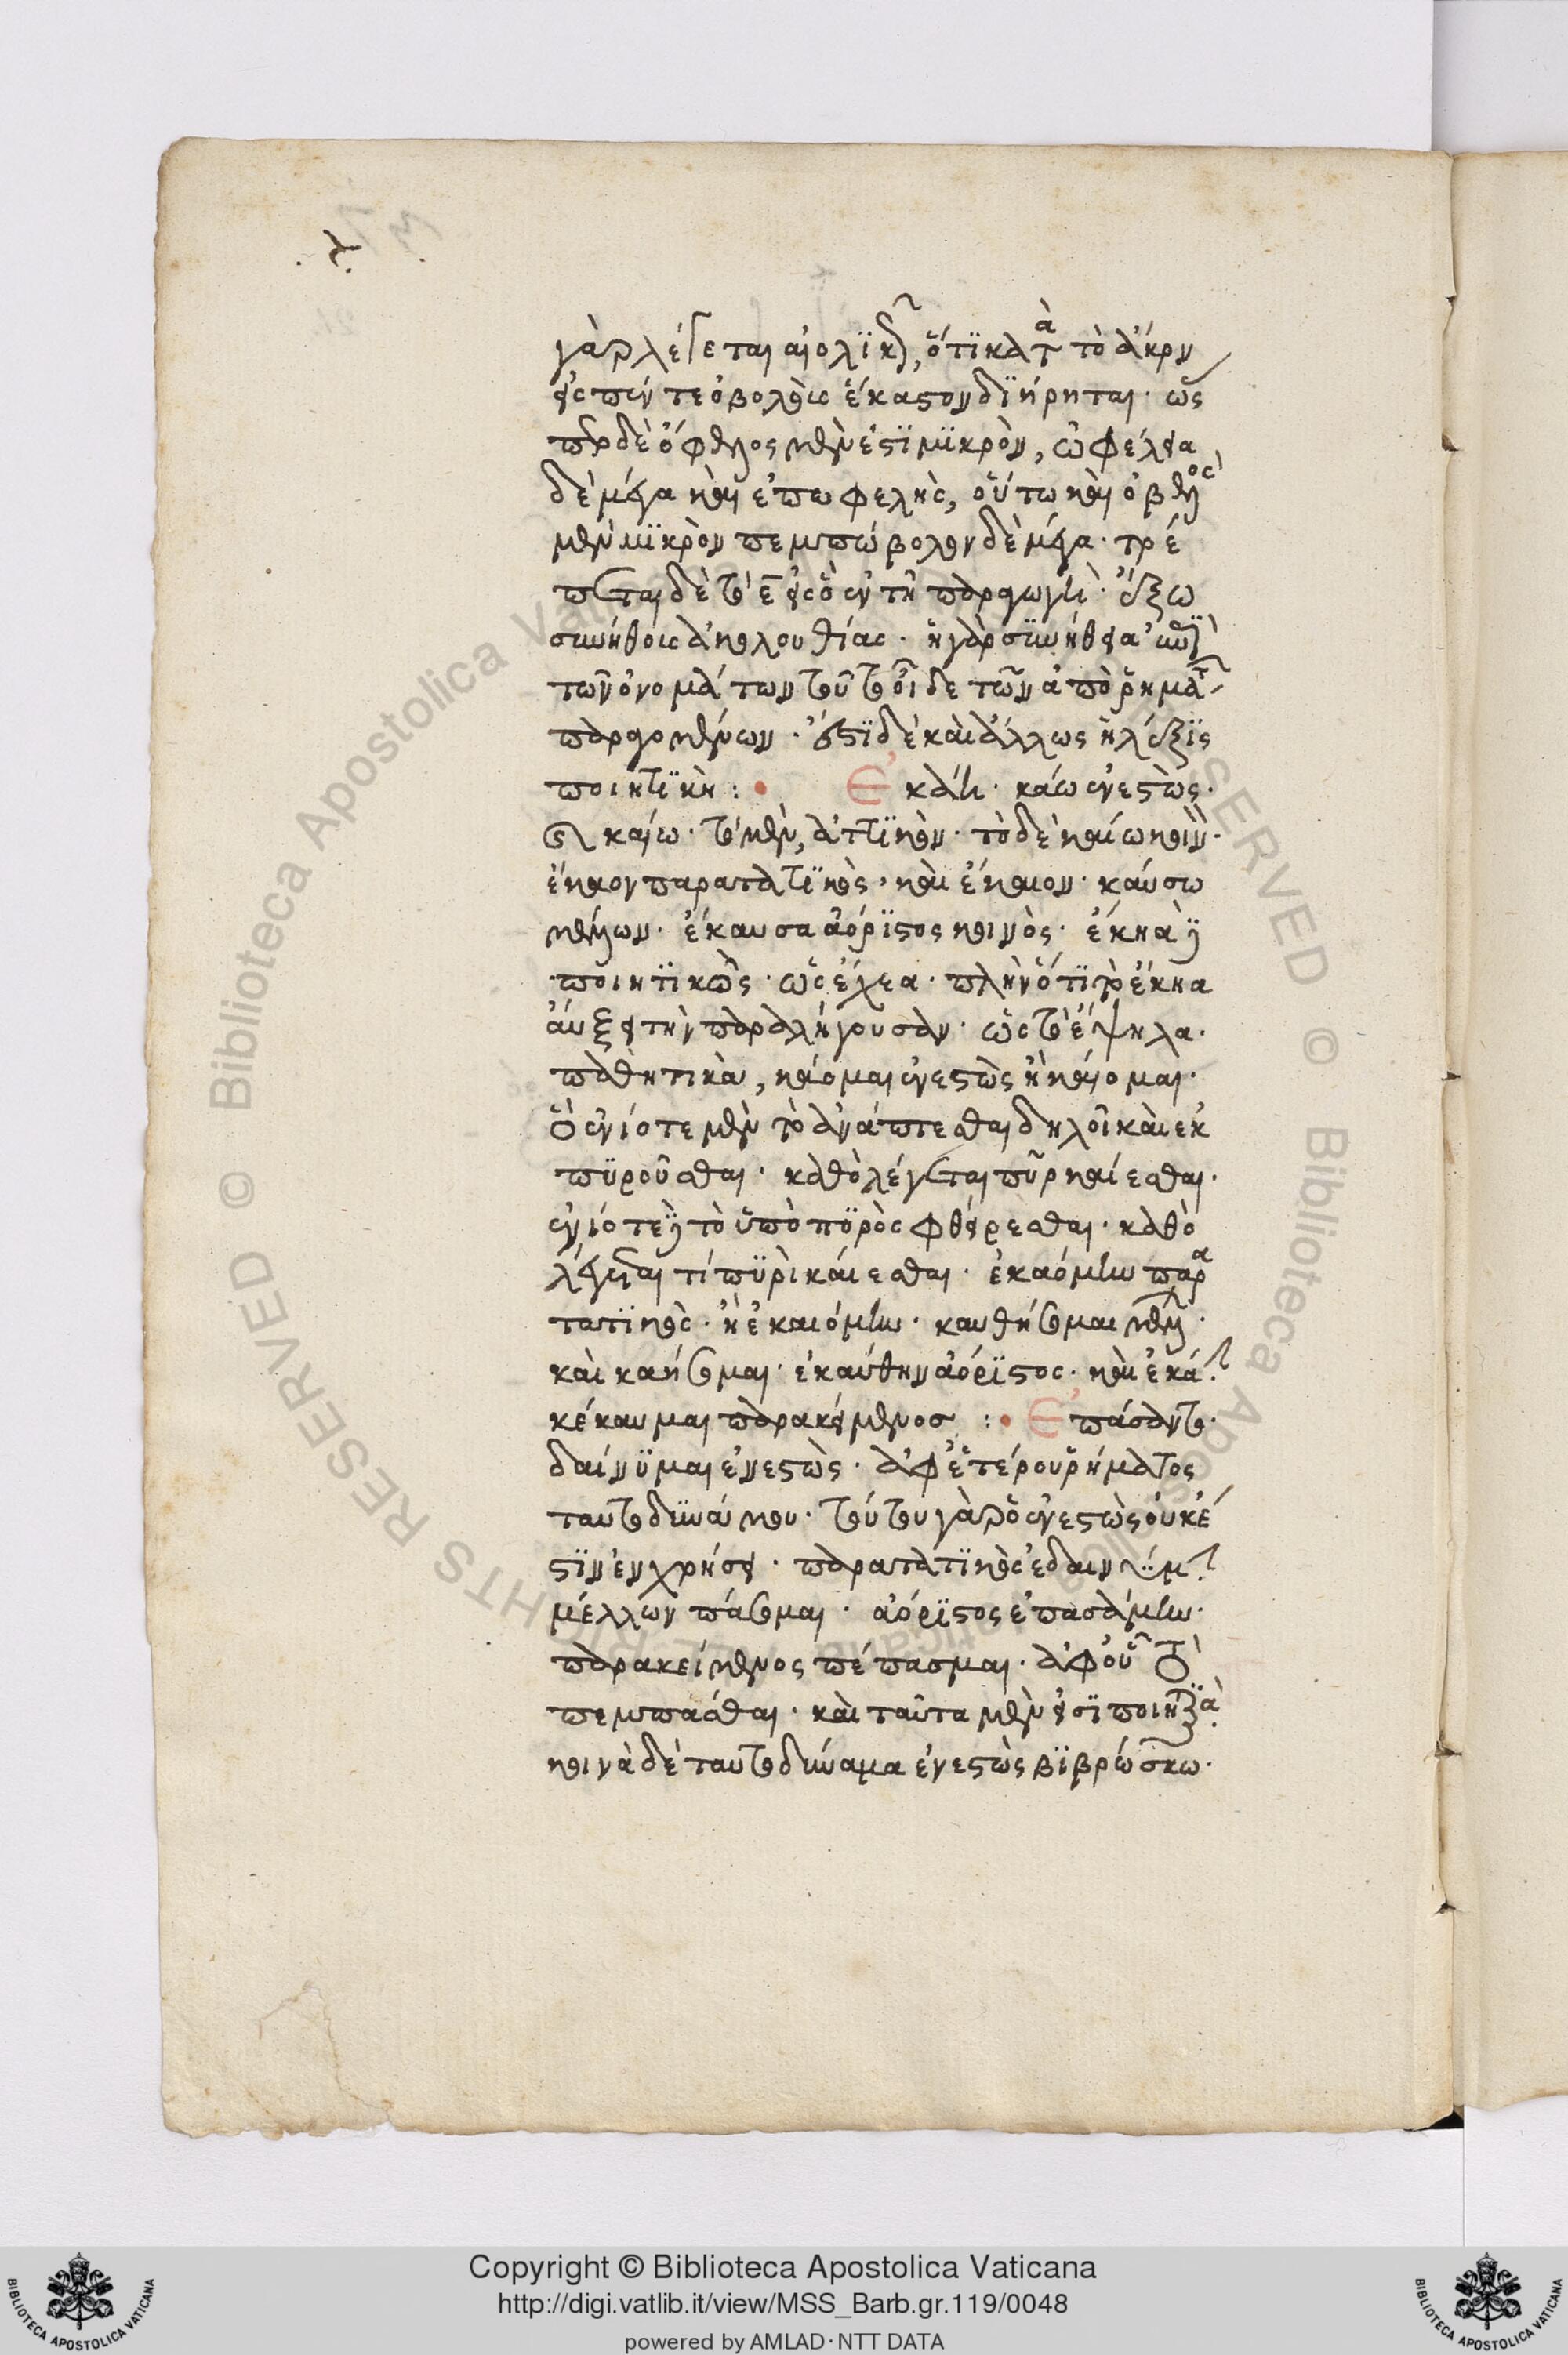 γὰρ λέγεται αἰολϊκῶς, ὅτϊ κατὰ τὸ ἄκρον
εἰς πέντε ὀβολοὺς ἕκαστον διήρηται· ὥσ
περ δὲ ὄφελος μὲν ἐστϊ μϊκρὸν, ὠφέλεια
δὲ μέγα καὶ ἐπωφελὴς, οὕτω καὶ ὀβελὸς
μὲν μϊκρὸν πεμπώβολον δὲ μέγα· τρέ
πεται δὲ τὸ ε εἰς ο ἐν τῆ παραγωγῆ· ἔξω
συνήθους ἀκολουθίας· ἡ γὰρ συνήθεια
τῶν ὀνομάτων τοῦτο οἶδε τῶν ἀπὸ ῥημάτων
παραγομένων· ἔστϊ δὲ καὶ ἄλλως ἡ λέξϊς
ποιητϊκὴ: Ἐκάη· κάω ἐνεστὼς·
καίω· τὸ μὲν, ἀττϊκὸν· τὸ δὲ καίω κοινὸν·
ἔκαον παρατατϊκὸς, καὶ ἔκαιον· καύσω
μέλλων· ἔκαυσα ἀόρϊστος κοινὸς· ἔκηα δὲ
ποιητϊκῶς· ὡς ἔχεα· πλὴν ὅτϊ τὸ ἔκηα
αὔξει τὴν παραλήγουσαν· ὡς τὸ ἔψηλα·
παθητικὰ, κάομαι ἐνεστὼς ἢ καίομαι·
ὃ ἐνίοτε μὲν τὸ ἀνάπτεσθαι δηλοῖ καὶ ἐκ
πϋροῦσθαι· καθὸ λέγεται πῦρ καίεσθαι·
ἐνίοτε δὲ τὸ ὑπὸ πϋρὸς φθείρεσθαι· καθὸ
λέγεται τί πϋρὶ κάιεσθαι· ἐκαόμην παρα
τατϊκὸς· ἢ ἐκαιόμην· καυθήσομαι μέλλων·
καὶ καήσομαι· ἐκαύθην ἀόρϊστος· καὶ ἐκάην
κέκαυμαι παρακείμενος :· Ἐπάσαντο·
δαίνϋμαι ἐνεστὼς· ἀφ' ἑτέρου ῥήματος
ταυτοδυνάμου· τούτου γὰρ ὁ ἐνεστὼς οὐκ ἔ
στϊν ἐν χρήσει· παρατατϊκὸς ἐδαινύμην
μέλλων πάσομαι· ἀόρϊστος ἐπασάμην·
παρακείμενος πέπασμαι· ἀφ' οὗ τὸ
πεμπάσθαι· καὶ ταῦτα μὲν εἰσϊ ποιητϊκά
κοινὰ δὲ ταυτοδύναμα ἐνεστὼς βϊβρώσκω·
Copyright © Biblioteca Apostolica Vaticana
http://digi.vatlib.it/view/MSS_Barb.gr.119/0048
powered by AMLAD·NTT DATA